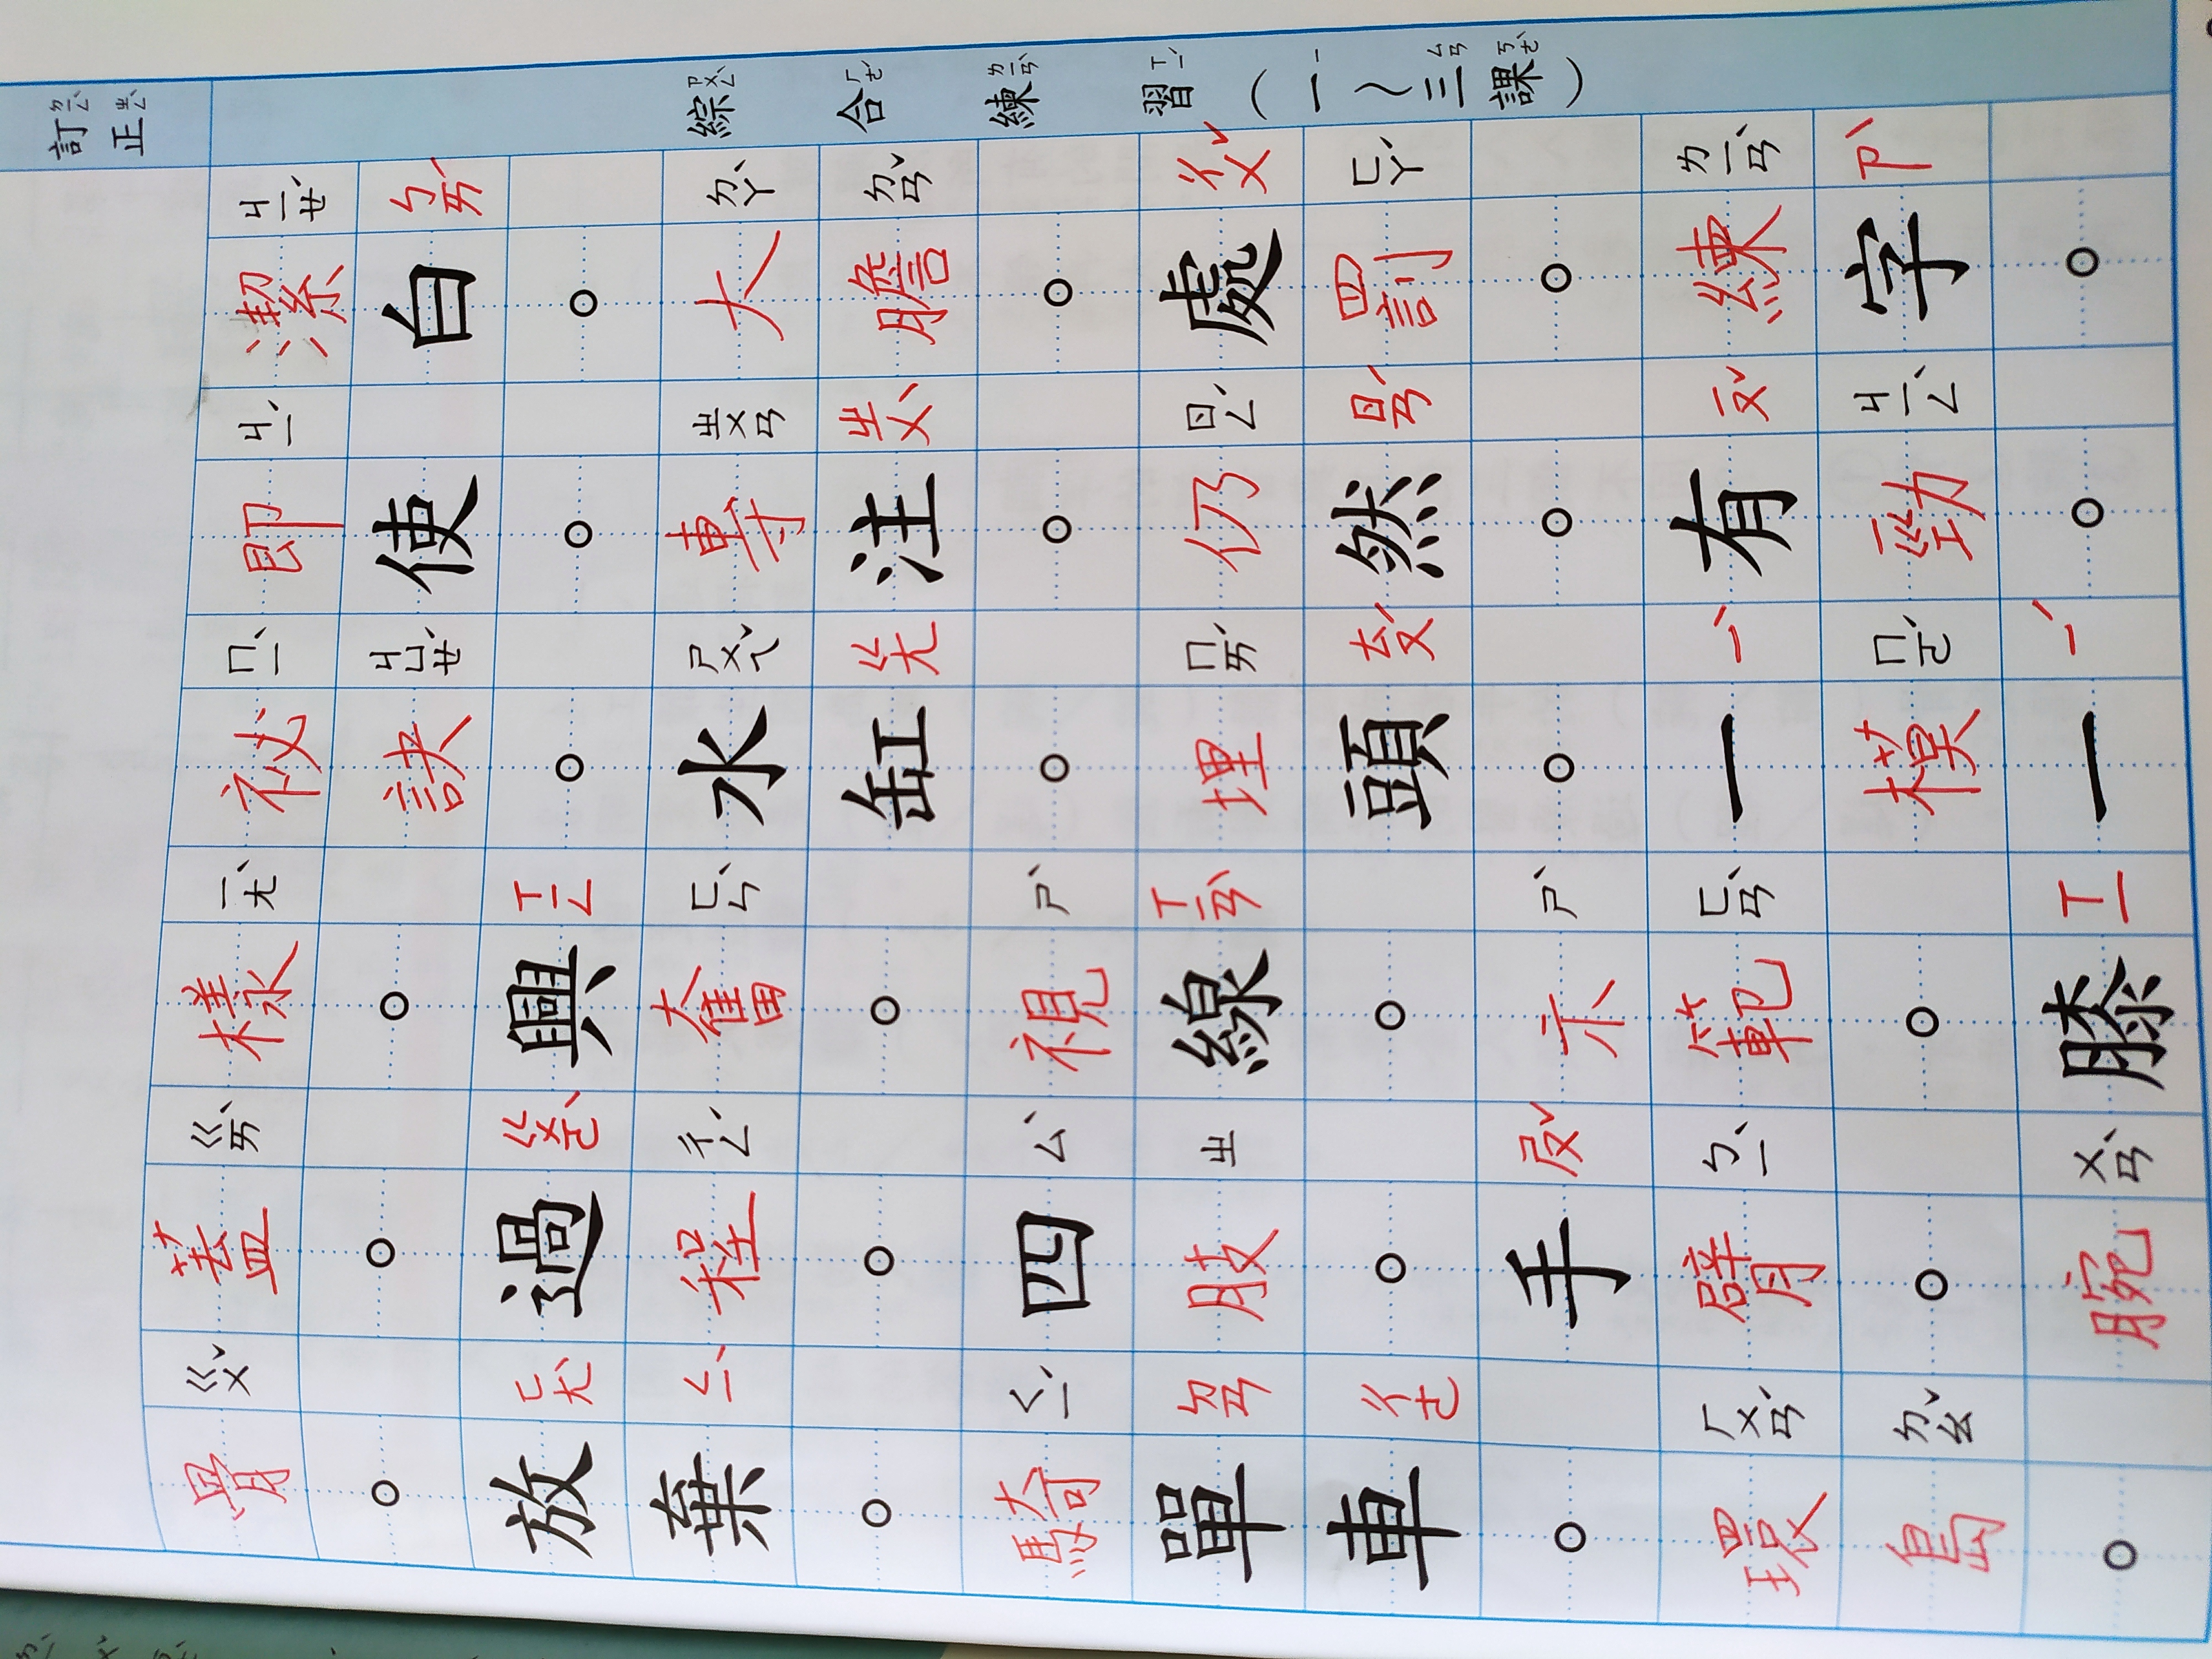 訂正
ㄉㄧㄥˋ ㄓㄥˋ
綜合練習（一～三課）
ㄗㄨㄥˋ ㄏㄜˊ ㄌㄧㄢˋ ㄒㄧˊ ㄧ ㄙㄢ ㄎㄜˋ
潔白。大膽。處罰。練字。
ㄐㄧㄝˊ ㄅㄞˊ ㄉㄚˋ ㄉㄢˇ ㄔㄨˇ ㄈㄚˊ ㄌㄧㄢˋ ㄗˋ
即使。專注。仍然。有勁。
ㄐㄧˊ ㄓㄨㄢ ㄓㄨˋ ㄖㄥˊ ㄖㄢˊ ㄧㄡˇ ㄐㄧㄥˋ
祕訣。水缸。埋頭。一模一
ㄇㄧˋ ㄐㄩㄝˊ ㄕㄨㄟˇ ㄍㄤ ㄇㄞˊ ㄊㄡˊ ㄧˋ ㄇㄛˊ ㄧˊ
樣。興奮。視線。示範。膝
ㄧㄤˋ ㄒㄧㄥ ㄈㄣˋ ㄕˋ ㄒㄧㄢˋ ㄕˋ ㄈㄢˋ ㄒㄧ
蓋。過程。四肢。手臂。腕
ㄍㄞˋ ㄍㄨㄛˋ ㄔㄥˊ ㄙˋ ㄓ ㄕㄡˇ ㄅㄧˋ ㄨㄢˋ
骨。放棄。騎單車。環島。
ㄍㄨˇ ㄈㄤˋ ㄑㄧˋ ㄑㄧˊ ㄉㄢ ㄔㄜ ㄏㄨㄢˊ ㄉㄠˇ